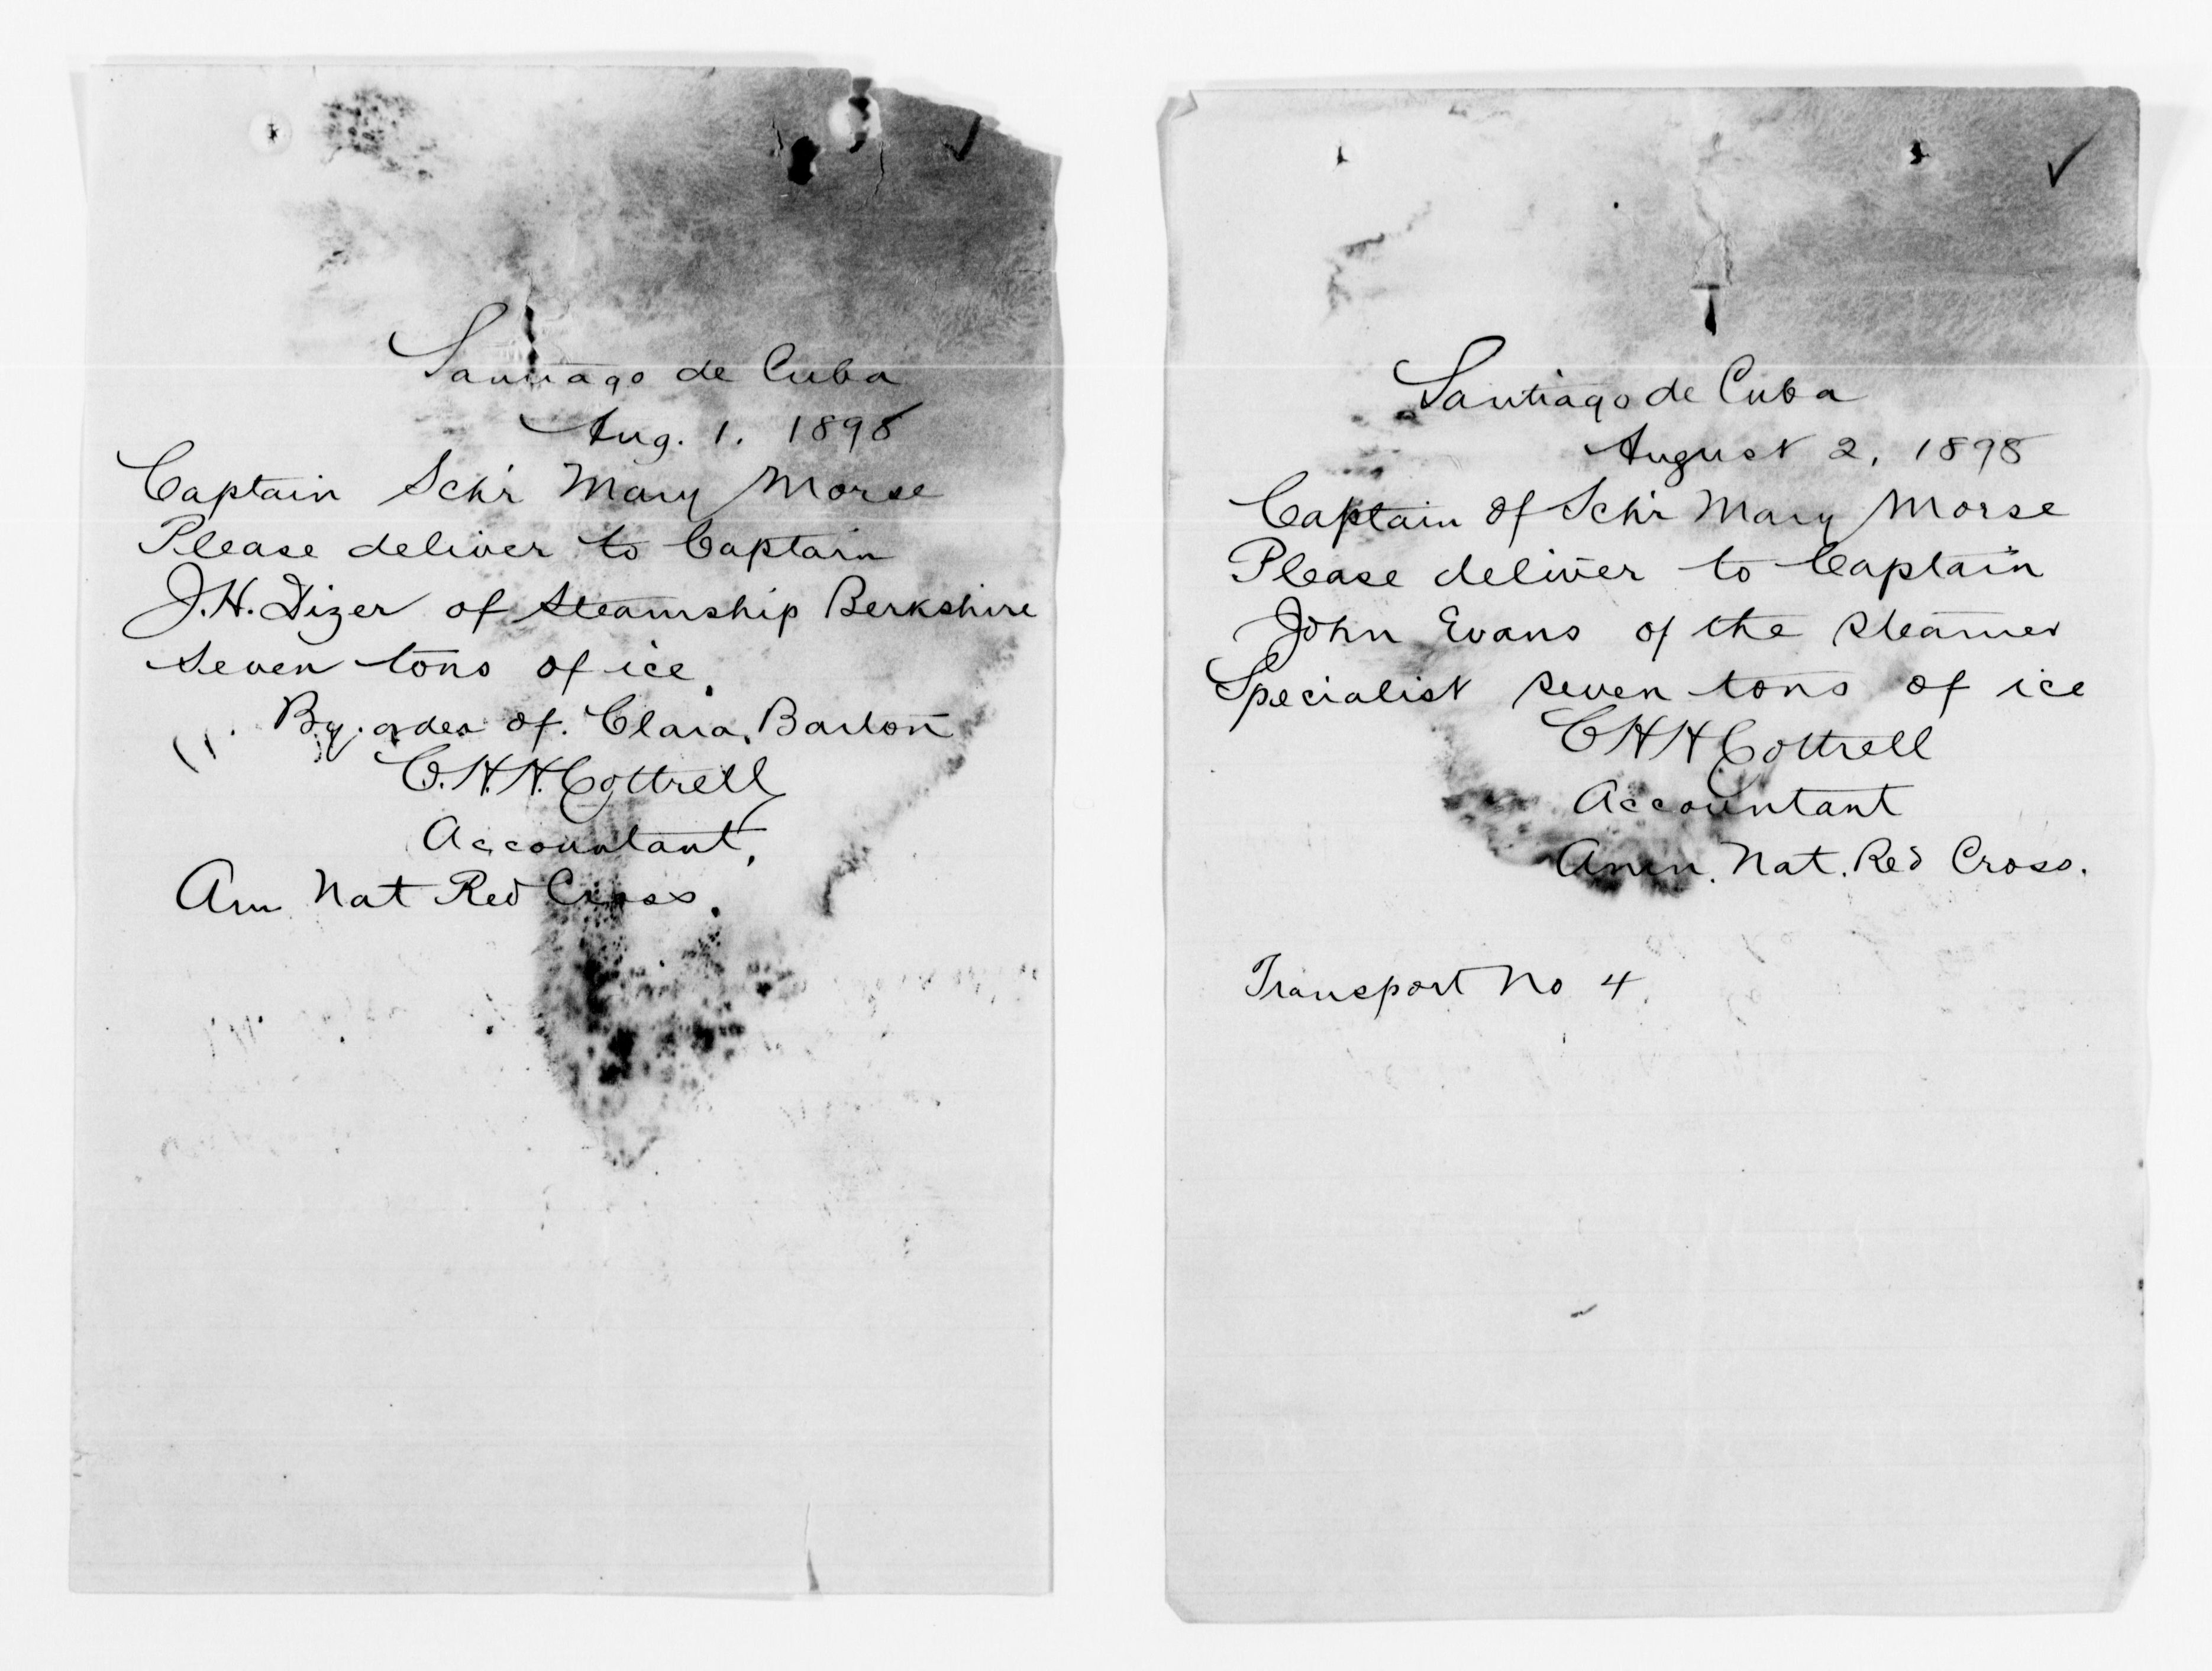 Santiago de Cuba
Aug. 1. 1898
Captain Schr Mary Morse
Please deliver to Captain
J.H. Dizer of Steamship Berkshire
seven tons of ice.
By order of Clara Barton
C.H.H. Cottrell
Accountant,
Am Nat Red Cross.
Santiago de Cuba
August 2, 1898
Captain of Schr Mary Morse
Please deliver to Captain
John Evans of the steamer
Specialist seven tons of ice
CHH Cottrell
Accountant
Amn. Nat. Red Cross.
Transport No 4.